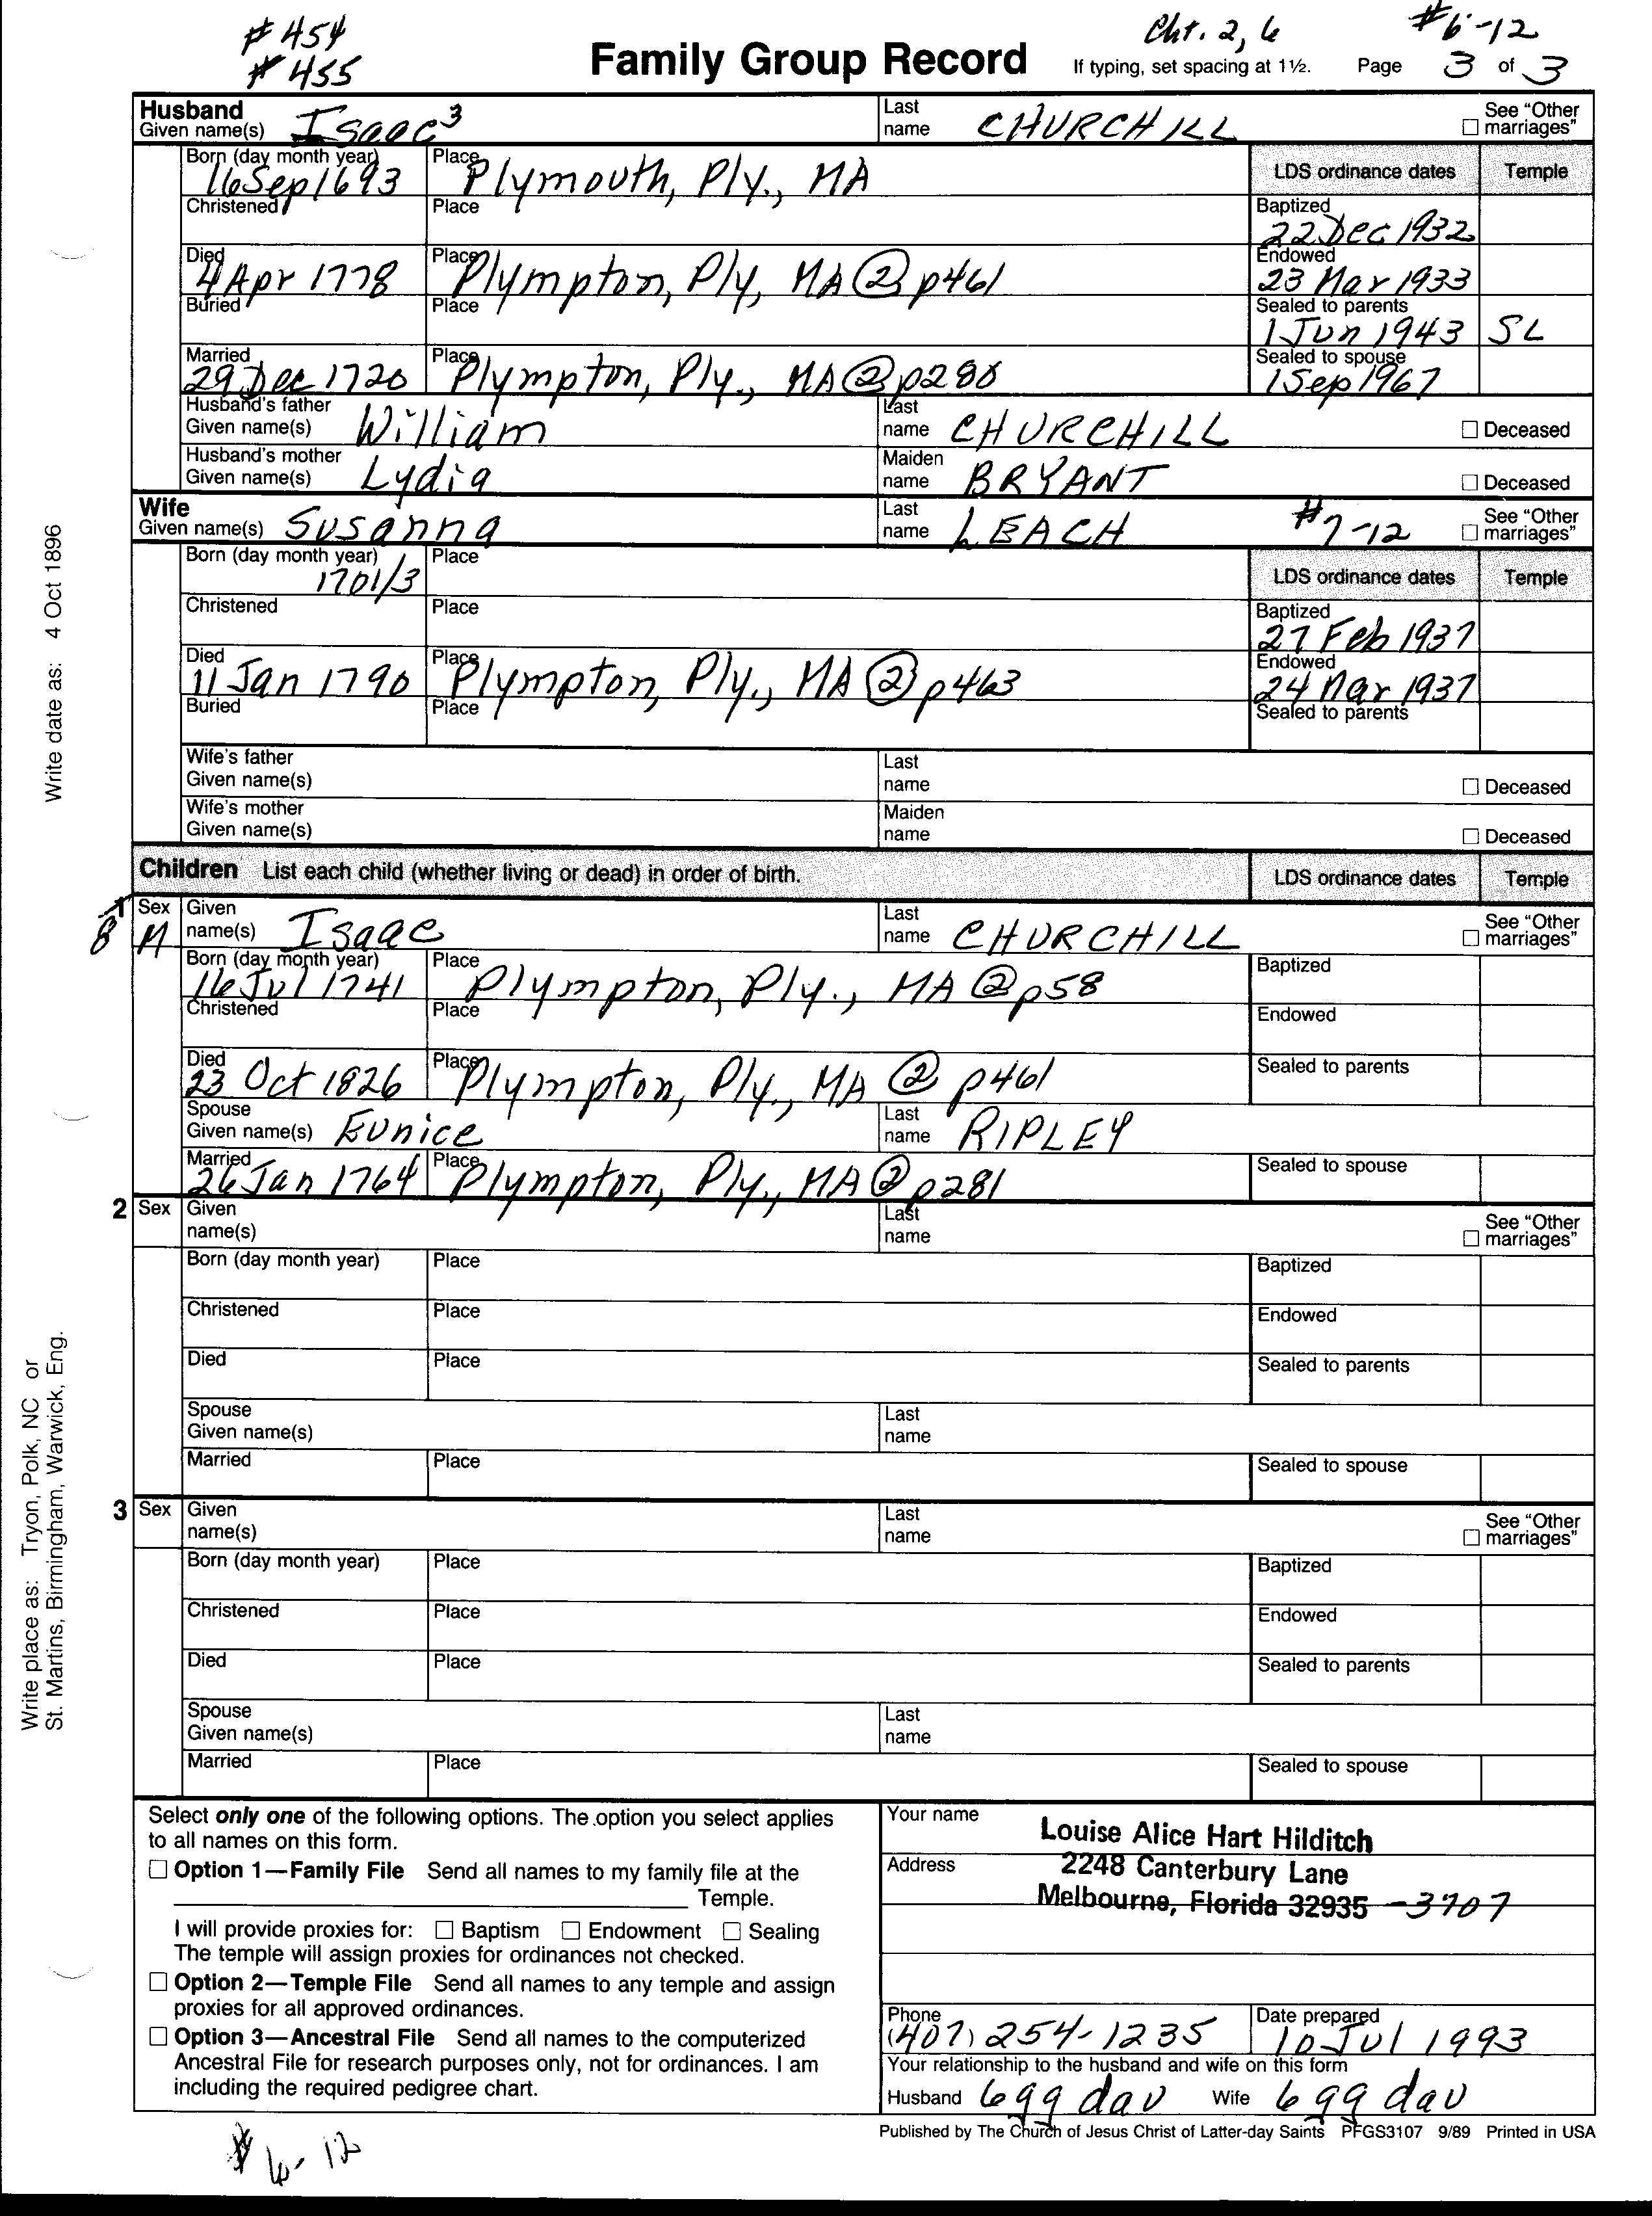 # 454
# 455
Family Group Record
Cht. 2, 6
#6-12
If typing, set spacing at 1½. Page 3 of 3
Husband
Given name(s) Isaac³ Last name CHURCHILL See "Other marriages"
Born (day month year) 16 Sep 1693 Place Plymouth, Ply., MA LDS ordinance dates Temple
Christened Place Baptized 22 Dec 1932
Died 4 Apr 1778 Place Plympton, Ply, MA @ p461 Endowed 23 Mar 1933
Buried Place Sealed to parents 1 Jun 1943 SL
Married 29 Dec 1720 Place Plympton, Ply., MA @ p280 Sealed to spouse 1 Sep 1967
Husband's father Given name(s) William Last name CHURCHILL Deceased
Husband's mother Given name(s) Lydia Maiden name BRYANT Deceased
Wife
Given name(s) Susanna Last name LEACH #7-12 See "Other marriages"
Born (day month year) 1701/3 Place LDS ordinance dates Temple
Christened Place Baptized 27 Feb 1937
Died 11 Jan 1790 Place Plympton, Ply., MA @ p463 Endowed 24 Mar 1937
Buried Place Sealed to parents
Wife's father Given name(s) Last name Deceased
Wife's mother Given name(s) Maiden name Deceased
Children List each child (whether living or dead) in order of birth. LDS ordinance dates Temple
8 Sex M Given name(s) Isaac Last name CHURCHILL See "Other marriages"
Born (day month year) 16 Jul 1741 Place Plympton, Ply., MA @ p58 Baptized
Christened Place Endowed
Died 23 Oct 1826 Place Plympton, Ply., MA @ p461 Sealed to parents
Spouse Given name(s) Eunice Last name RIPLEY
Married 26 Jan 1764 Place Plympton, Ply., MA @ p281 Sealed to spouse
2 Sex Given name(s) Last name See "Other marriages"
Born (day month year) Place Baptized
Christened Place Endowed
Died Place Sealed to parents
Spouse Given name(s) Last name
Married Place Sealed to spouse
3 Sex Given name(s) Last name See "Other marriages"
Born (day month year) Place Baptized
Christened Place Endowed
Died Place Sealed to parents
Spouse Given name(s) Last name
Married Place Sealed to spouse
Select only one of the following options. The option you select applies
to all names on this form.
Option 1—Family File Send all names to my family file at the
Temple.
I will provide proxies for: Baptism Endowment Sealing
The temple will assign proxies for ordinances not checked.
Option 2—Temple File Send all names to any temple and assign
proxies for all approved ordinances.
Option 3—Ancestral File Send all names to the computerized
Ancestral File for research purposes only, not for ordinances. I am
including the required pedigree chart.
Your name Louise Alice Hart Hilditch
Address 2248 Canterbury Lane
Melbourne, Florida 32935 -3707
Phone (407) 254-1235 Date prepared 10 Jul 1993
Your relationship to the husband and wife on this form
Husband 6 gg dau Wife 6 gg dau
Published by The Church of Jesus Christ of Latter-day Saints PFGS3107 9/89 Printed in USA
# 6-12
Write date as: 4 Oct 1896
Write place as: Tryon, Polk, NC or
St. Martins, Birmingham, Warwick, Eng.